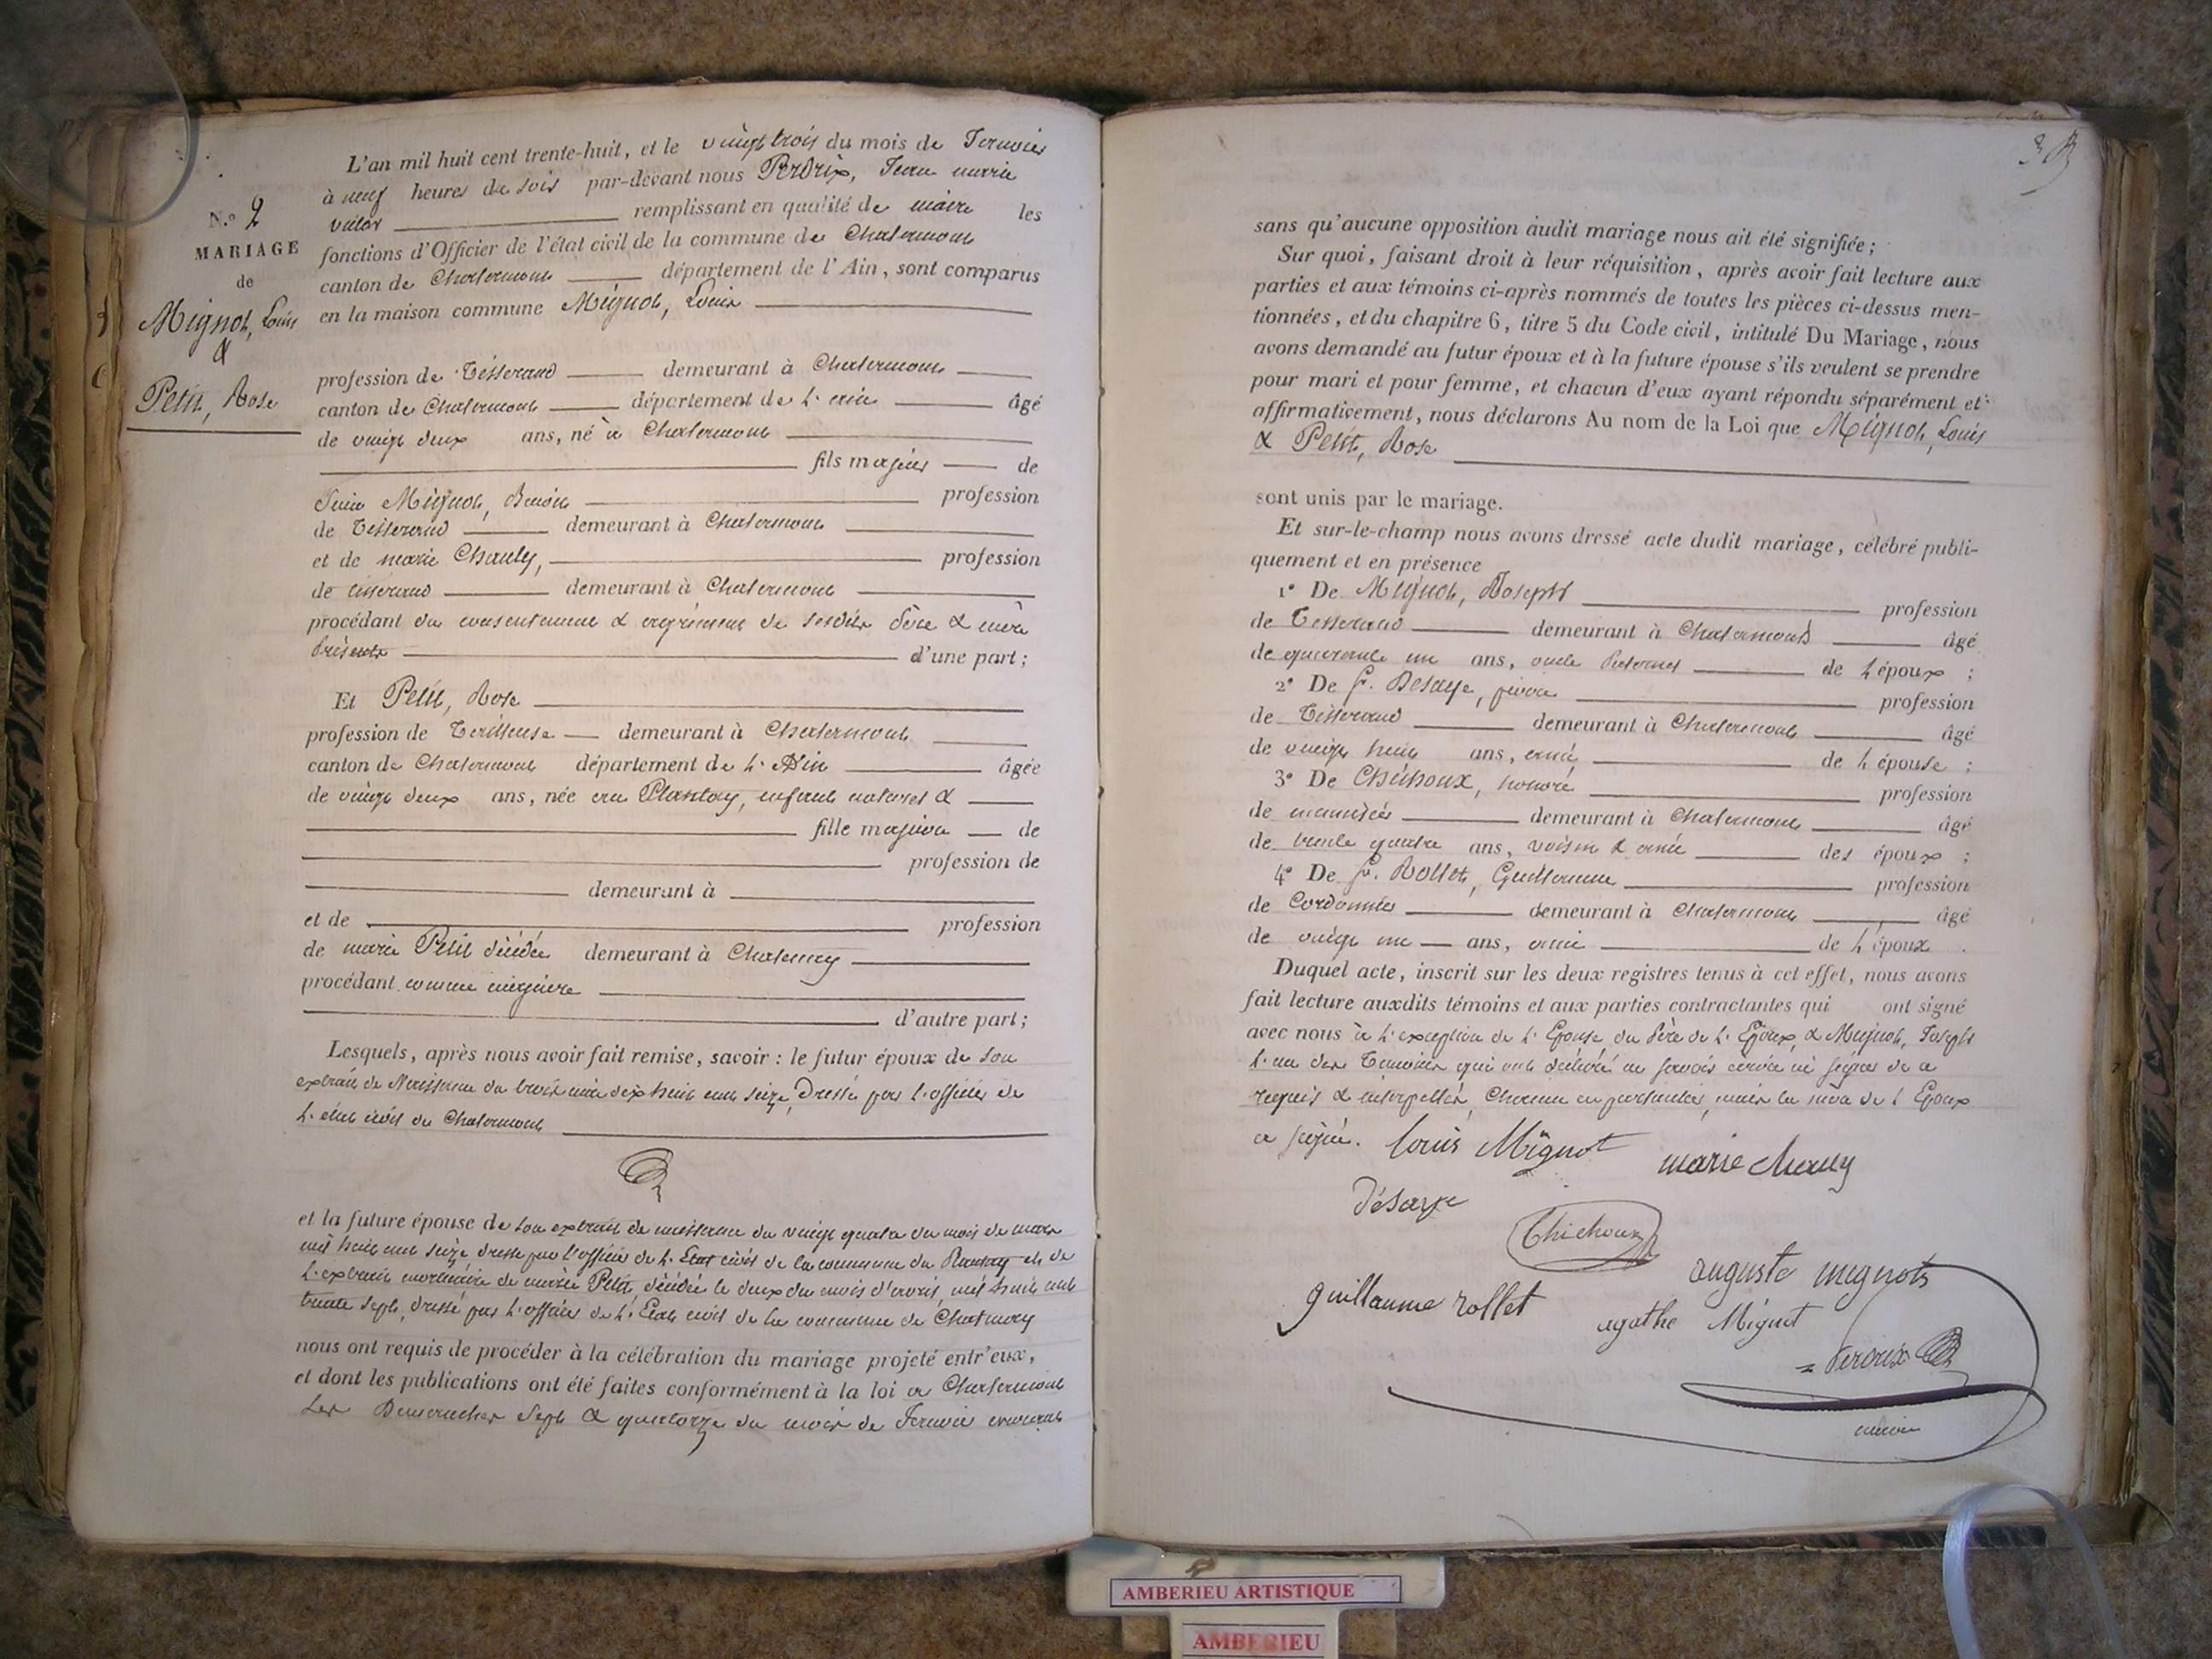 L'an mil huit cent trente-huit, et le vingt trois du mois de Janvier
à neuf heures du soir par-devant nous Perdrix, Jean marie
remplissant en qualité de maire les
N.º 2
MARIAGE
de
Mignot, Louis
&
Petit, Rose
fonctions d'Officier de l'état civil de la commune de Chalamont
canton de Chalamont département de l'Ain, sont comparus
en la maison commune Mignot, Louis
profession de Tisserand demeurant à Chalamont
canton de Chalamont département de l'ain âgé
de vingt deux ans, né à Chalamont
fils majeur de
Mignot, Benoit profession
de Tisserand demeurant à Chalamont
et de marie Chauly, profession
de tisserand demeurant à Chalamont
procédant du consentement & agrément de sesdits Père & mère
présents d'une part;
Et Petit, Rose
profession de Tailleuse demeurant à Chalamont
canton de Chalamont département de l'Ain âgée
de vingt deux ans, née au Plantay, enfant naturel &
fille majeure de
profession de
demeurant à
et de profession
de marie Petit décédée demeurant à Chatenay
procédant comme majeure
d'autre part;
Lesquels, après nous avoir fait remise, savoir : le futur époux de son
extrait de Naissance du trois mai dix huit cent seize, Dressé par l'officier de
l'état civil de Chalamont
et la future épouse de son extrait de naissance du vingt quatre du mois de mars
mil huit cent seize dressé par l'officier de l'Etat civil de la commune du Plantay et de
l'extrait mortuaire de marie Petit, décédée le deux du mois d'avril, mil huit cent
trente sept, dressé par l'officier de l'Etat civil de la commune de Chatenay
nous ont requis de procéder à la célébration du mariage projeté entr'eux,
et dont les publications ont été faites conformément à la loi a Chalamont
Les Dimanches Sept & quatorze du mois de Janvier courant
sans qu'aucune opposition audit mariage nous ait été signifiée ;
Sur quoi, faisant droit à leur réquisition, après avoir fait lecture aux
parties et aux témoins ci-après nommés de toutes les pièces ci-dessus men-
tionnées, et du chapitre 6, titre 5 du Code civil, intitulé Du Mariage, nous
avons demandé au futur époux et à la future épouse s'ils veulent se prendre
pour mari et pour femme, et chacun d'eux ayant répondu séparément et
affirmativement, nous déclarons Au nom de la Loi que Mignot, Louis
& Petit, Rose
sont unis par le mariage.
Et sur-le-champ nous avons dressé acte dudit mariage, célébré publi-
quement et en présence
1º De Mignot, Joseph profession
de Tisserand demeurant à Chalamont âgé
de quarante un ans, oncle Paternel de l'époux ;
2º De Desaye, pierre profession
de Tisserand demeurant à Chalamont âgé
de vingt huit ans, ami, de l'épouse ;
3º De Chichoux, honoré profession
de menuisier demeurant à Chalamont âgé
de trente quatre ans, voisin & ami des époux ;
4º De Rollet, Guillaume profession
de Cordonnier demeurant à Chalamont âgé
de vingt un ans, ami de l'époux .
Duquel acte, inscrit sur les deux registres tenus à cet effet, nous avons
fait lecture auxdits témoins et aux parties contractantes qui ont signé
avec nous à l'exception de l'Epouse du Père de l'Epoux, & Mignot, Joseph
l'un des Témoins qui ont déclaré ne savoir de ce
requis & interpellés, Chacun en particulier, mais la mère de l'Epoux
a signé. Louis Mignot marie chauly
désaye
Chichoux
auguste mignots
guillaume rollet agathe Mignot
Perdrix
maire
AMBERIEU ARTISTIQUE
AMBERIEU